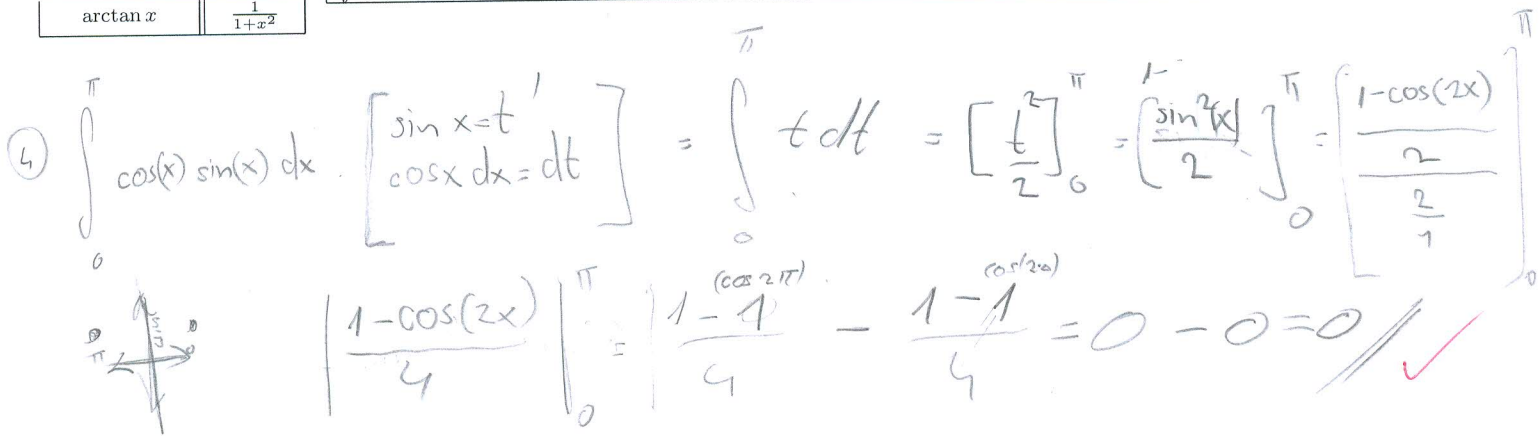 arctan x 1/(1+x²)
④ ∫₀^π cos(x) sin(x) dx . [ sin x = t ' cos x dx = dt ] = ∫₀^π t dt = [ t²/2 ]₀^π = [ 1- sin²(x)/2 ]₀^π = [ ((1-cos(2x))/2)/(2/1) ]₀^π
π 0 | (1-cos(2x))/4 |₀^π = | (1-1 (cos 2π))/4 - (1-1 cos(2·0))/4 = 0 - 0 = 0 // ✓